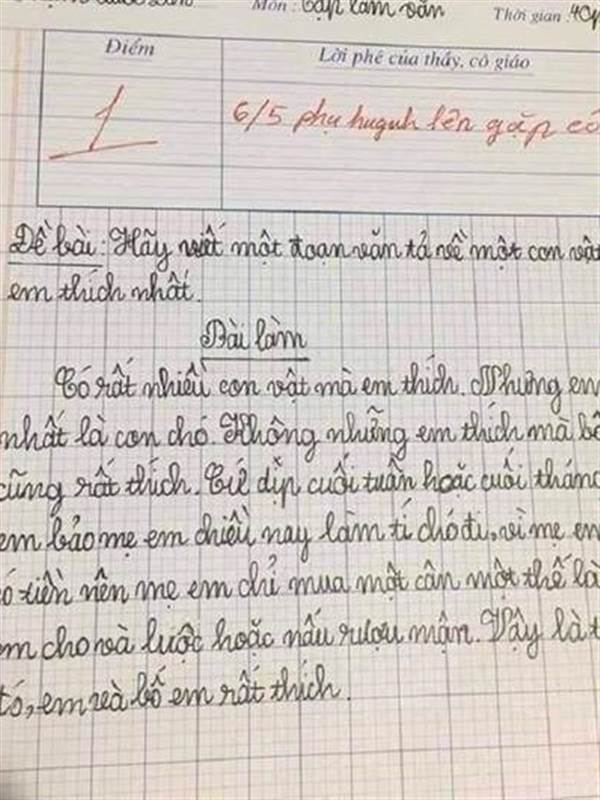 Môn : Tập làm văn Thời gian : 40p
Điểm Lời phê của thầy, cô giáo
1 6/5 phụ huynh lên gặp cô
Đề bài : Hãy viết một đoạn văn tả về một con vật
em thích nhất.
Bài làm
Có rất nhiều con vật mà em thích. Nhưng em
nhất là con chó. Không những em thích mà bố
cũng rất thích. Cứ dịp cuối tuần hoặc cuối tháng
em bảo mẹ em chiều nay làm tí chó đi, vì mẹ em
có tiền nên mẹ em chỉ mua một cân một thế là
em cho và luộc hoặc nấu rượu mận. Vậy là t
tó, em và bố em rất thích.